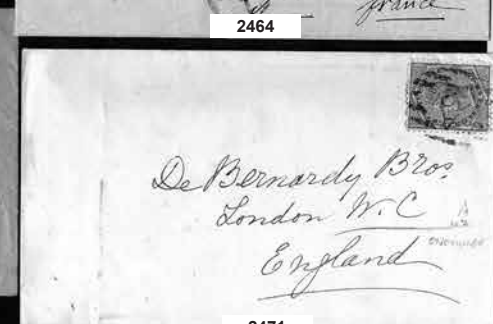 France
2464
De Bernardy Bros.
London W.C
England
2471